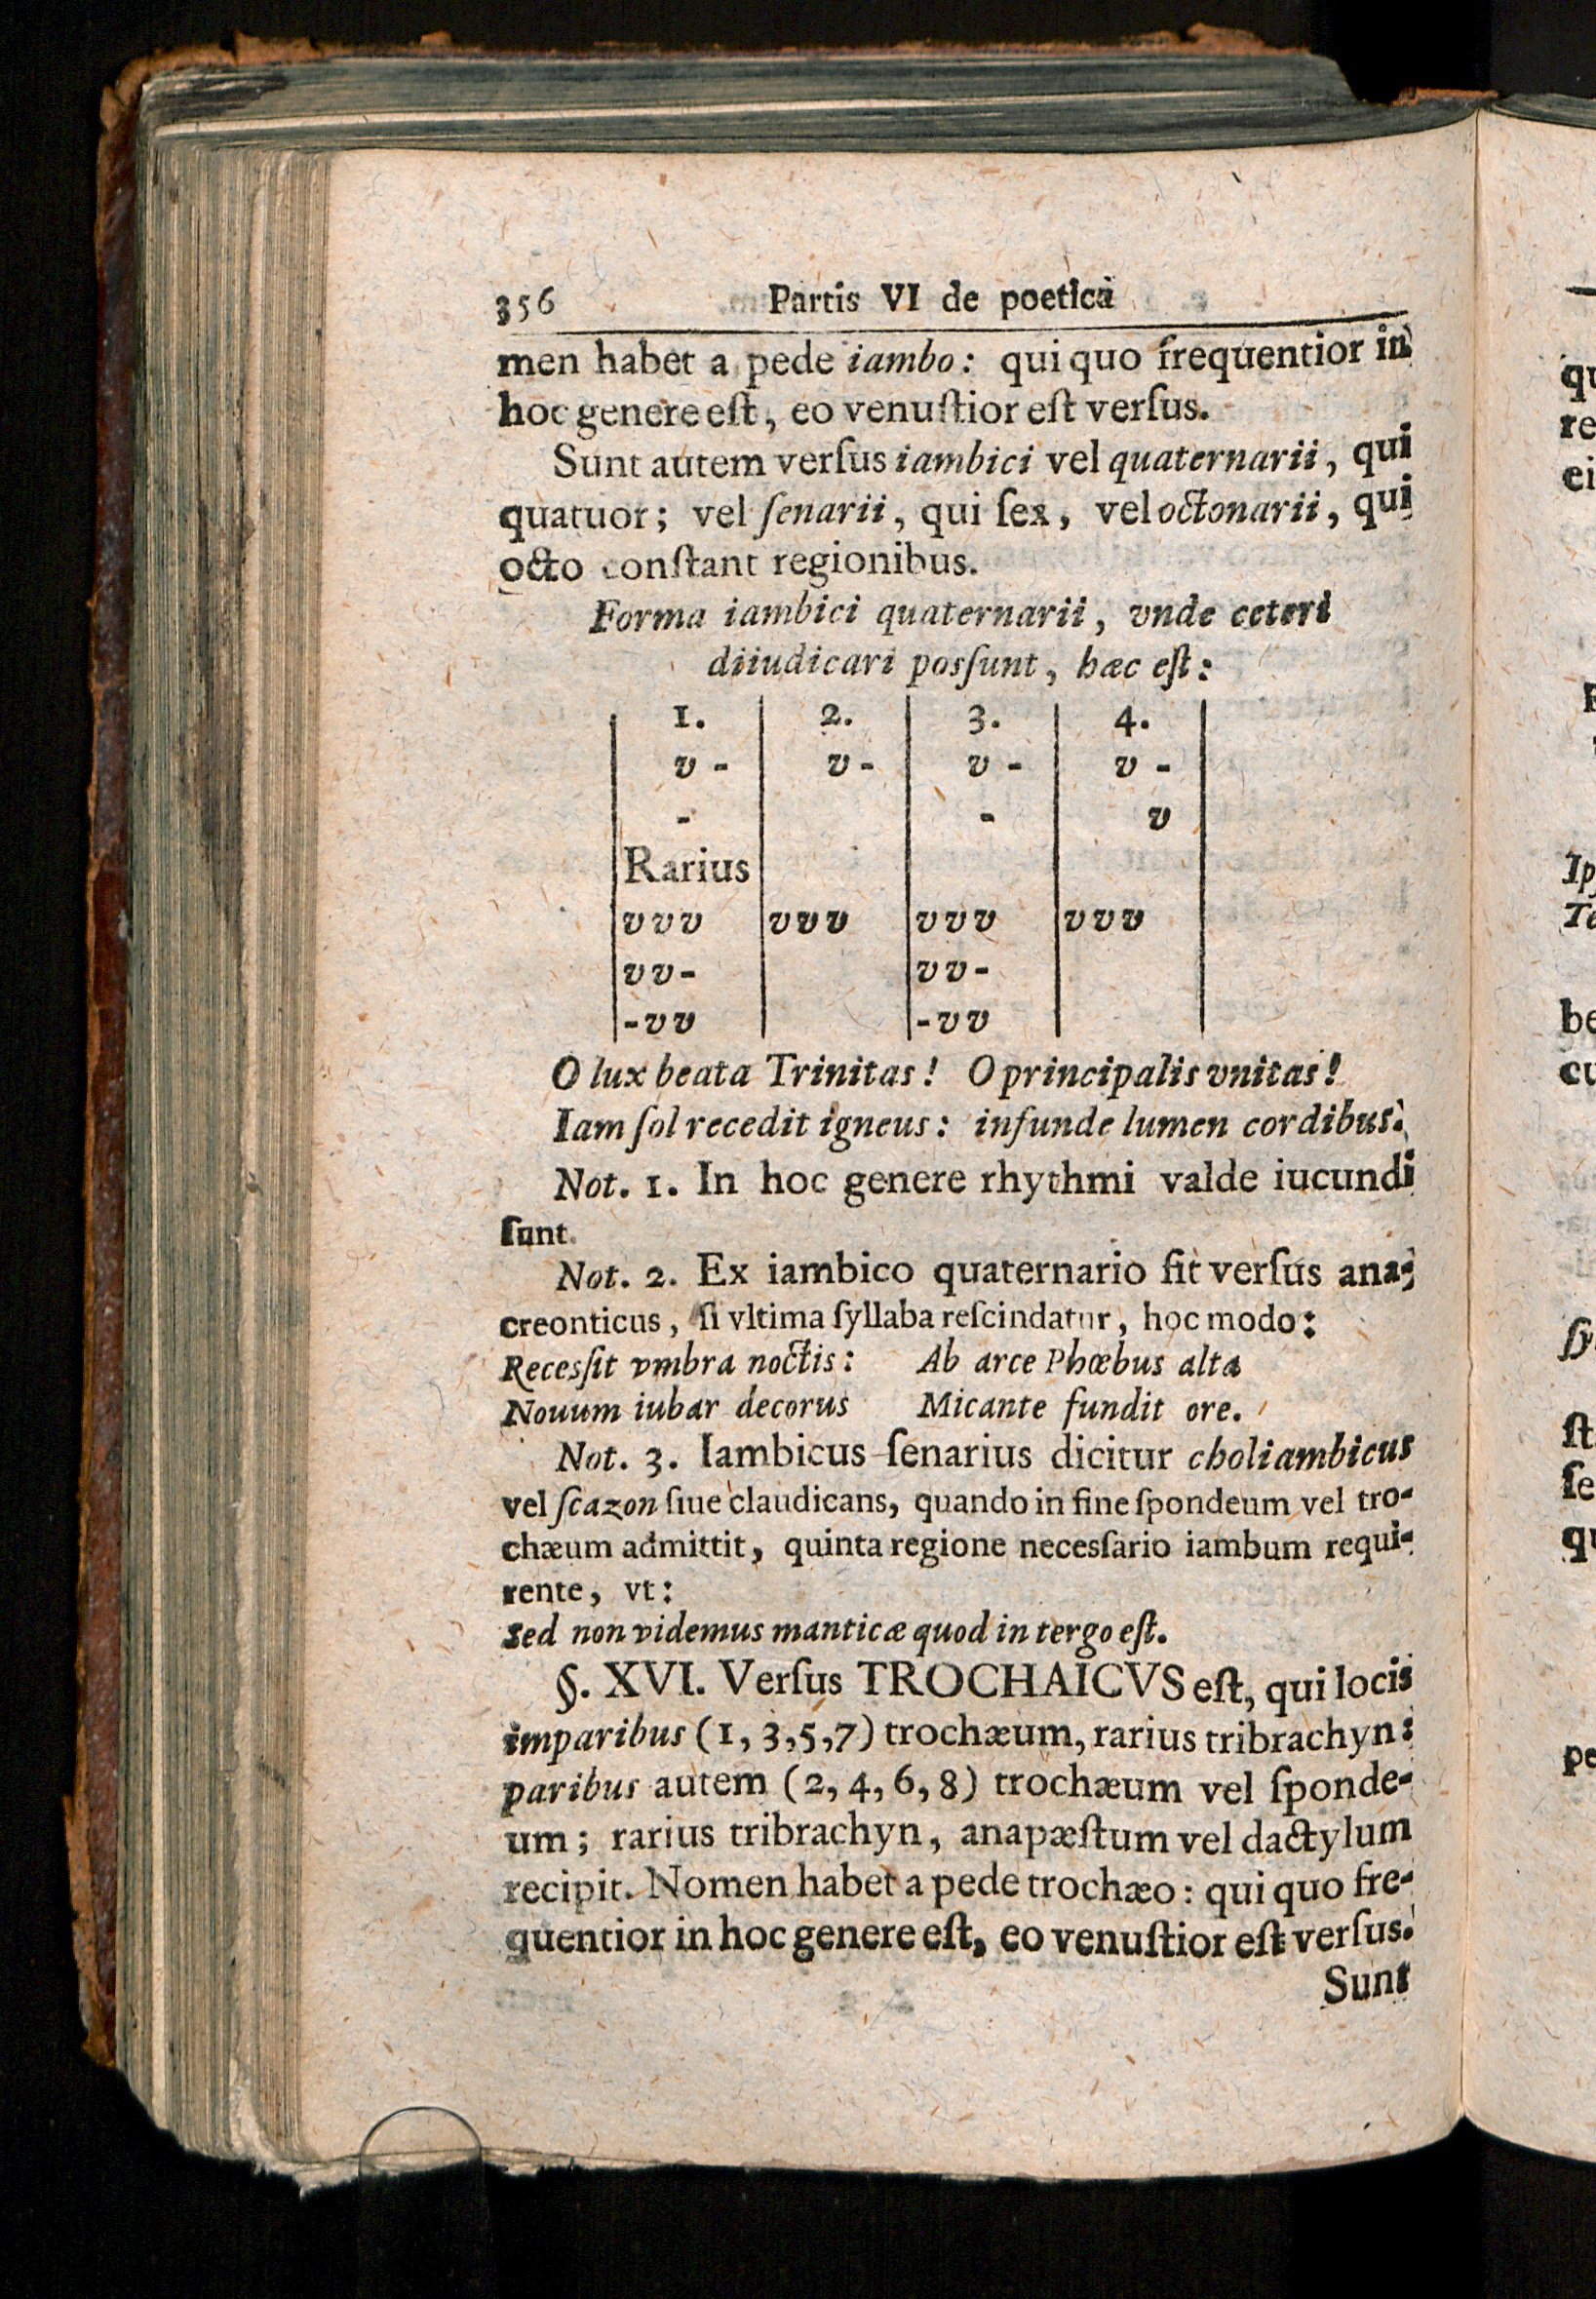 356 Partis VI de poetica
men habet a pede iambo: qui quo frequentior in
hoc genere eſt, eo venuſtior eſt verſus.
Sunt autem verſus iambici vel quaternarii, qui
quatuor; vel ſenarii, qui ſex, vel octonarii, qui
octo conſtant regionibus.
Forma iambici quaternarii, vnde ceteri
diiudicari posſunt, hæc eſt:
1. 2. 3. 4.
v - v - v - v -
- - v
Rarius
v v v v v v v v v v v v
v v - v v -
- v v - v v
O lux beata Trinitas! O principalis vnitas!
Iam ſol recedit igneus: infunde lumen cordibus.
Not. 1. In hoc genere rhythmi valde iucundi
ſunt.
Not. 2. Ex iambico quaternario fit verſus ana-
creonticus, ſi vltima ſyllaba reſcindatur, hoc modo:
Recesſit vmbra noctis: Ab arce Phœbus alta
Nouum iubar decorus Micante fundit ore.
Not. 3. Iambicus ſenarius dicitur choliambicus
vel ſcazon ſiue claudicans, quando in fine ſpondeum vel tro-
chæum admittit, quinta regione necesſario iambum requi-
rente, vt:
Sed non videmus manticæ quod in tergo eſt.
§. XVI. Verſus TROCHAICVS eſt, qui locis
imparibus (1, 3, 5, 7) trochæum, rarius tribrachyn:
paribus autem (2, 4, 6, 8) trochæum vel ſponde-
um; rarius tribrachyn, anapæſtum vel dactylum
recipit. Nomen habet a pede trochæo: qui quo fre-
quentior in hoc genere eſt, eo venuſtior eſt verſus.
Sunt